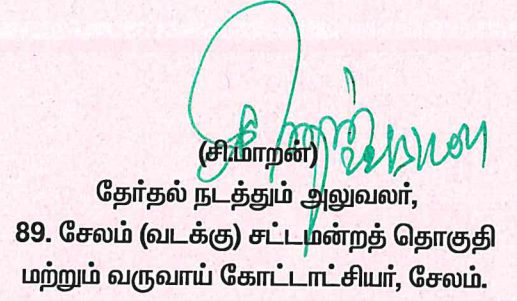 (சி.மாறன்)
தேர்தல் நடத்தும் அலுவலர்,
89. சேலம் (வடக்கு) சட்டமன்றத் தொகுதி
மற்றும் வருவாய் கோட்டாட்சியர், சேலம்.